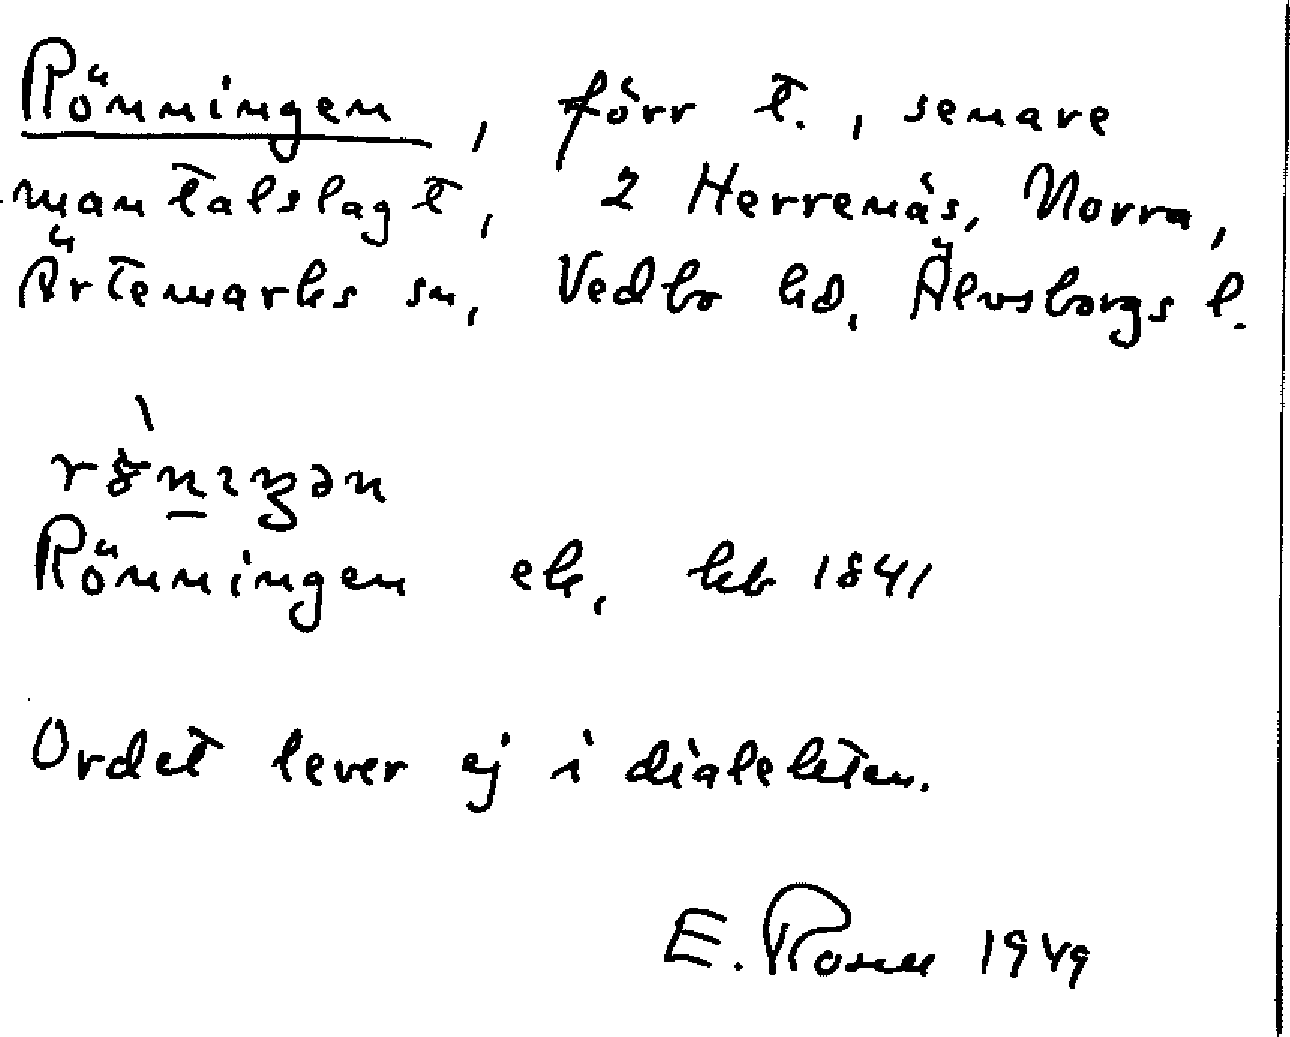 Rönningen, förr t., senare
mantalslagt, 2 Herrenäs, Norra,
Ärtemarks sn, Vedbo hd, Älvsborgs l.
Rönningen ek, kb 1841
Ordet lever ej i dialekten.
E. Rosell 1949